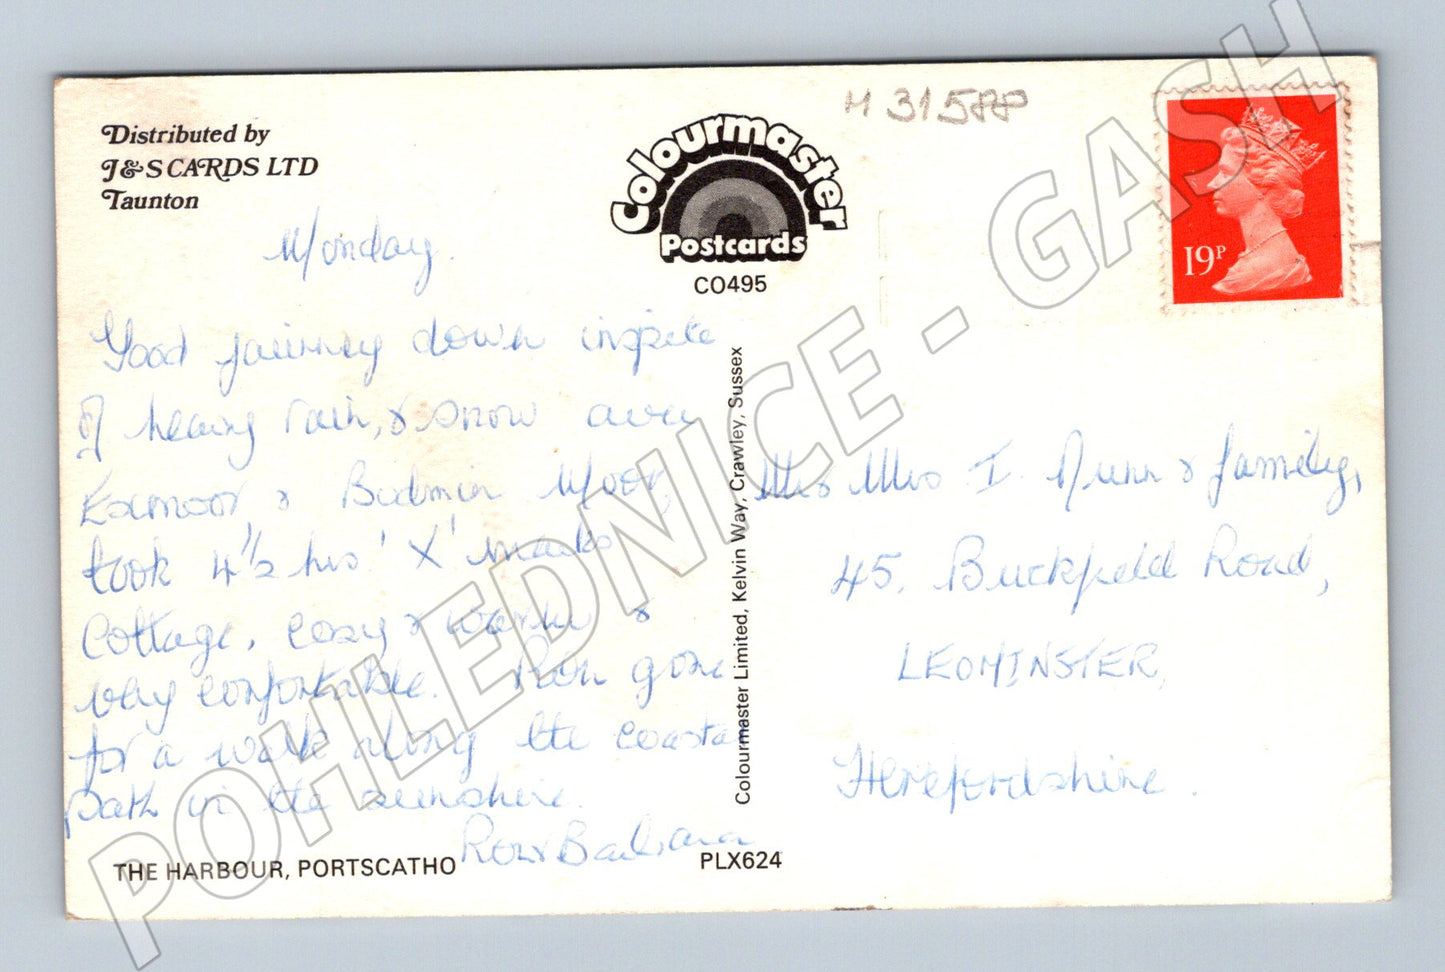 Distributed by
J&S CARDS LTD
Taunton
Colourmaster
Postcards
CO495
M 31588
19P
Monday.
Good journey down inspite
of heavy rain, & snow over
Exmoor & Bodmin Moor,
took 4½ hrs 'X' marks
Cottage, cosy & warm &
very comfortable. Ron gone
for a walk along the coastal
path in the sunshine.
Ron & Barbara
THE HARBOUR, PORTSCATHO
PLX624
Colourmaster Limited, Kelvin Way, Crawley, Sussex
Mr & Mrs I. Nunn & family,
45, Buckfield Road,
LEOMINSTER,
Herefordshire.
POHLEDNICE - GASH